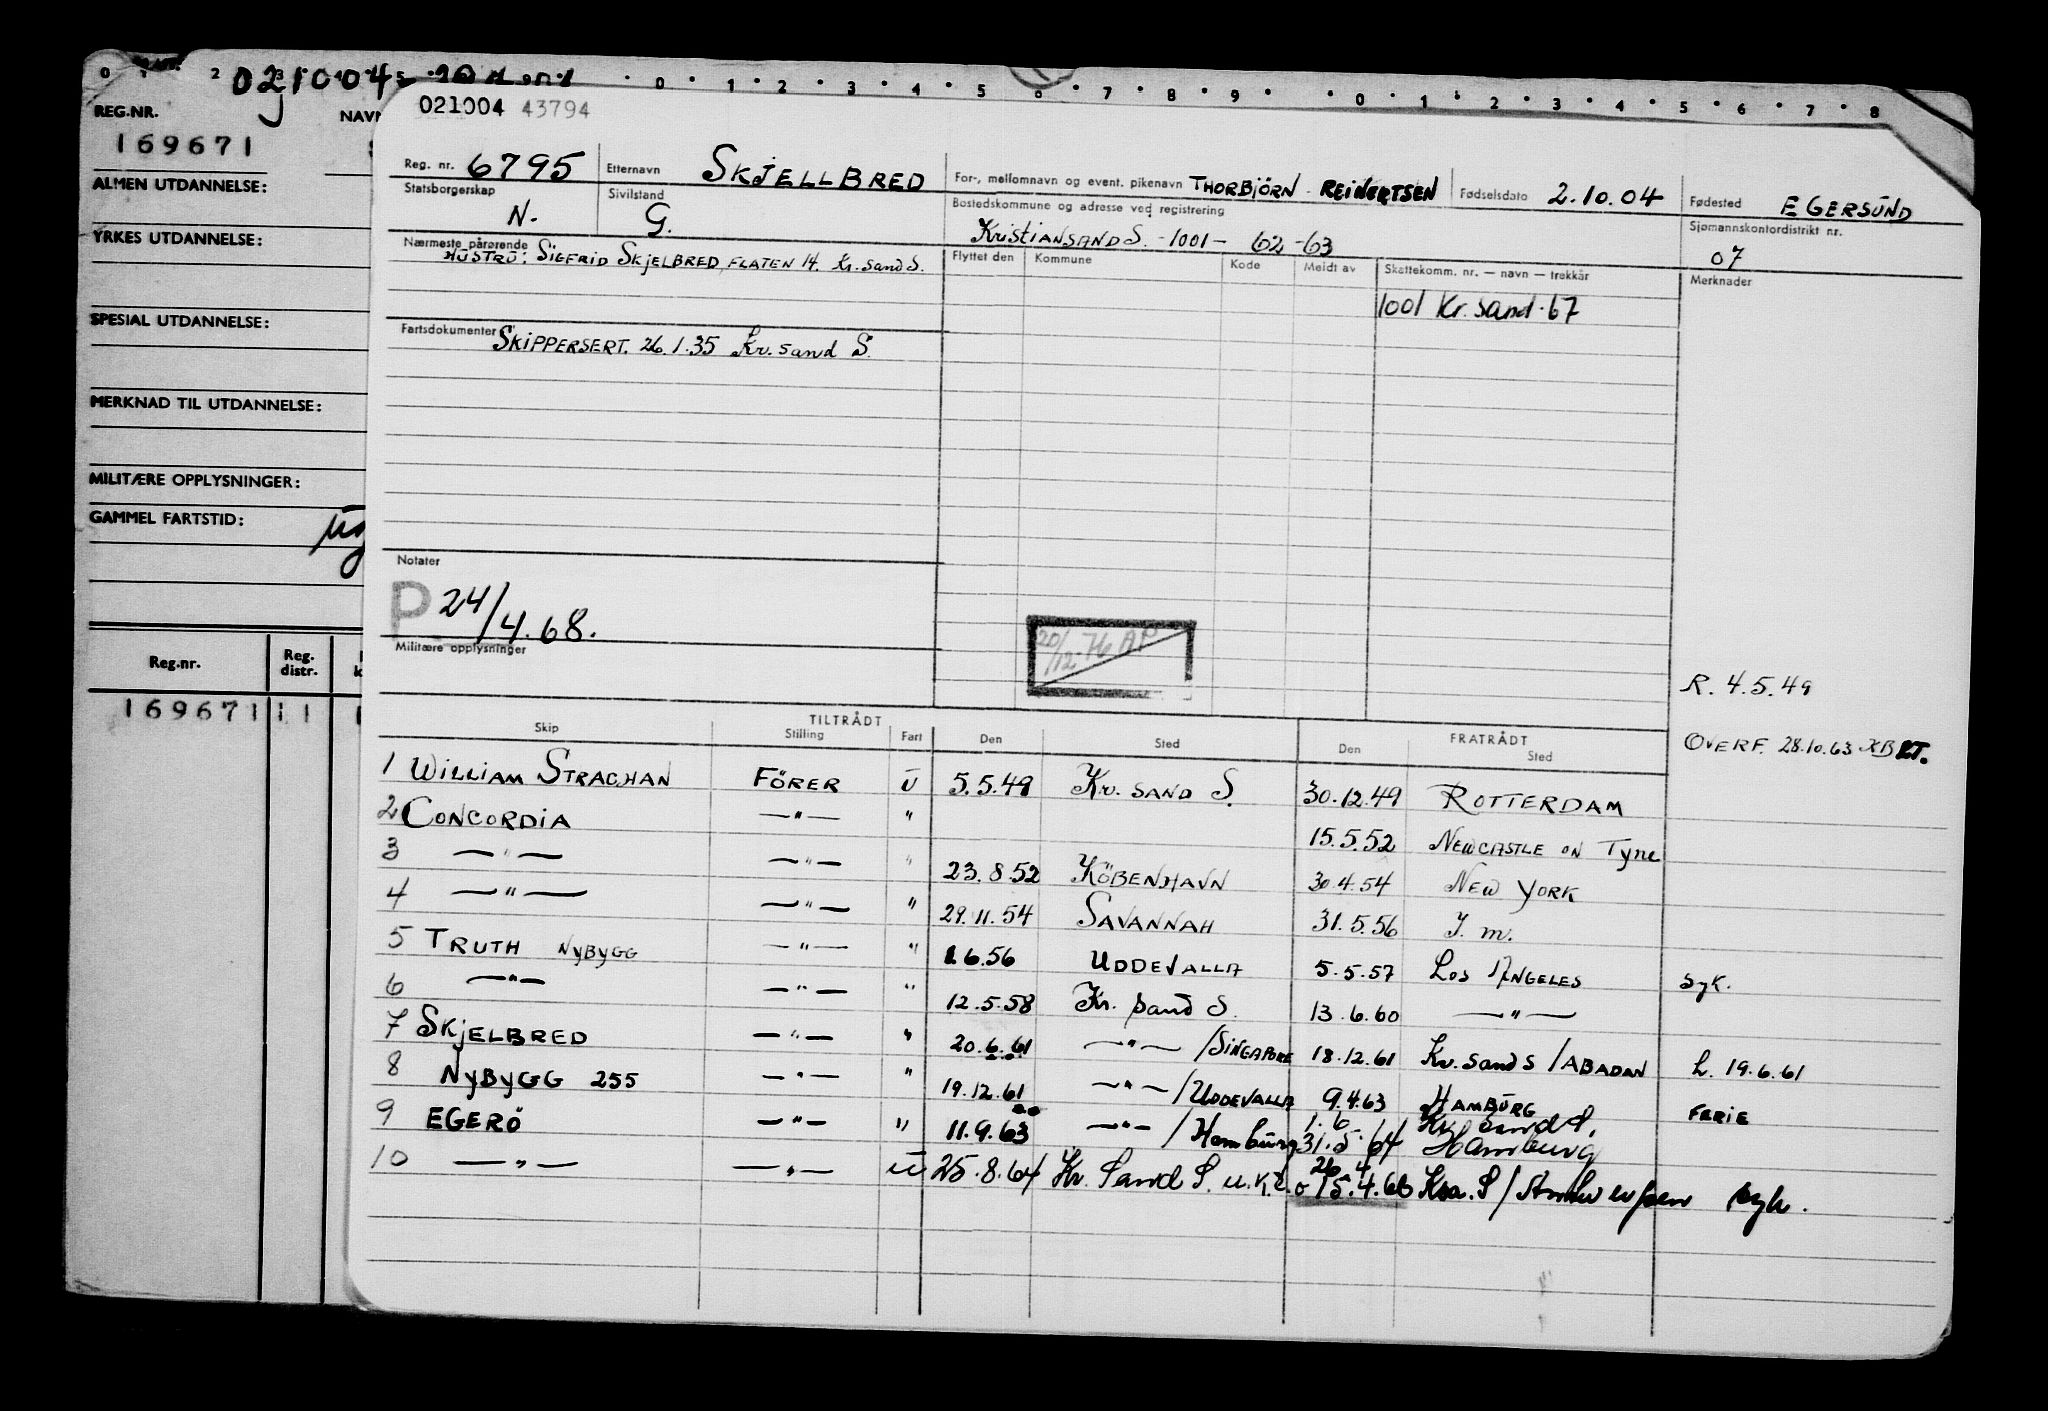 0 1 2 3 4 5 0 1 2 3 4 5 6 7 8 9 0 1 2 3 4 5 6 7 8
021004
021004 43794
REG.NR.
NAVN
169671
ALMEN UTDANNELSE:
YRKES UTDANNELSE:
SPESIAL UTDANNELSE:
MERKNAD TIL UTDANNELSE:
MILITÆRE OPPLYSNINGER:
GAMMEL FARTSTID:
Reg.nr. Reg. distr.
169671 11
Reg. nr. 6795 Etternavn SKJELLBRED For-, mellomnavn og event. pikenavn THORBJÖRN REINERTSEN Fødselsdato 2.10.04 Fødested EGERSUND
Statsborgerskap N. Sivilstand G. Bostedskommune og adresse ved registrering KristiANSAND S. -1001- 62-63 Sjømannskontordistrikt nr. 07
Nærmeste pårørende HUSTRU: SIGFRID SKJELBRED, FLATEN 14. Kr.sand S.
Flyttet den Kommune Kode Meldt av Skattekomm. nr. — navn — trekkår Merknader
1001 Kr.sand 67
Fartsdokumenter SKIPPERSERT. 26.1.35 Kr.sand S.
Notater
P 24/4.68.
20/12.76 AP
Militære opplysninger
R. 4.5.49
OVERF. 28.10.63
TILTRÅDT FRATRÅDT
Skip Stilling Fart Den Sted Den Sted
1 WILLIAM STRACHAN FÖRER U 5.5.49 Kr. SAND S. 30.12.49 ROTTERDAM
2 CONCORDIA —"— " 15.5.52 NEWCASTLE ON Tyne
3 —"— —"— " 23.8.52 KÖBENHAVN 30.4.54 NEW YORK
4 —"— —"— " 29.11.54 SAVANNAH 31.5.56 I. m.
5 TRUTH NYBYGG —"— " 1.6.56 UDDEVALLA 5.5.57 LOS ANGELES syk.
6 —"— —"— " 12.5.58 Kr. sand S. 13.6.60 —"—
7 SKJELBRED —"— " 20.6.61 —"— /SINGAPORE 18.12.61 Kr.sand S /ABADAN L. 19.6.61
8 NYBYGG 255 —"— " 19.12.61 —"— /UDDEVALLA 9.4.63 HAMBURG FERIE
9 EGERÖ —"— " 11.9.63 —"— /Hamburg 1.6 31.5.64 Kr. Sand S. Hamburg
10 —"— —"— U 25.8.64 Kr. Sand S. 26.4 15.4.66 Krsa. S / Antwerpen syk.